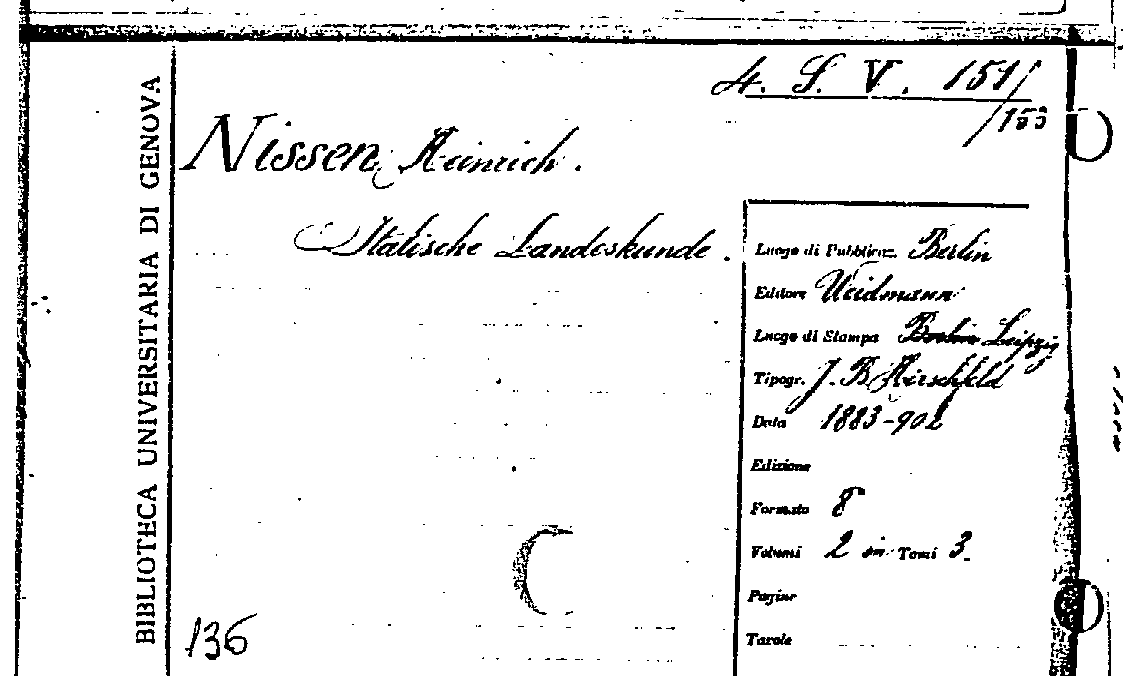 BIBLIOTECA UNIVERSITARIA DI GENOVA
4. S. V. 151/
/153
Nissen Heinrich.
Italische Landeskunde.
Luogo di Pubblicaz. Berlin
Editore Weidmann
Luogo di Stampa Berlin Leipzig
Tipogr. J. B. Hirschfeld
Data 1883-902
Edizione
Formato 8°
Volumi 2 in Tomi 3.
Pagine
Tavole
136